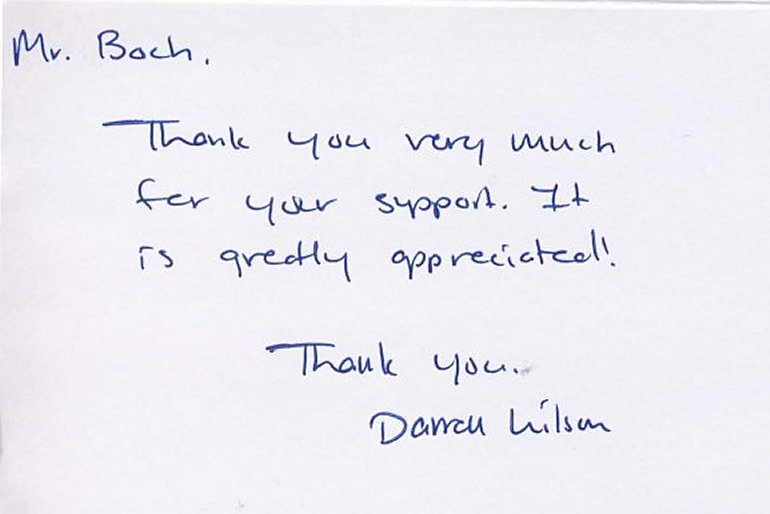 Mr. Boch.
Thank you very much
for your support. It
is greatly appreciated!
Thank you.
Darren Wilson